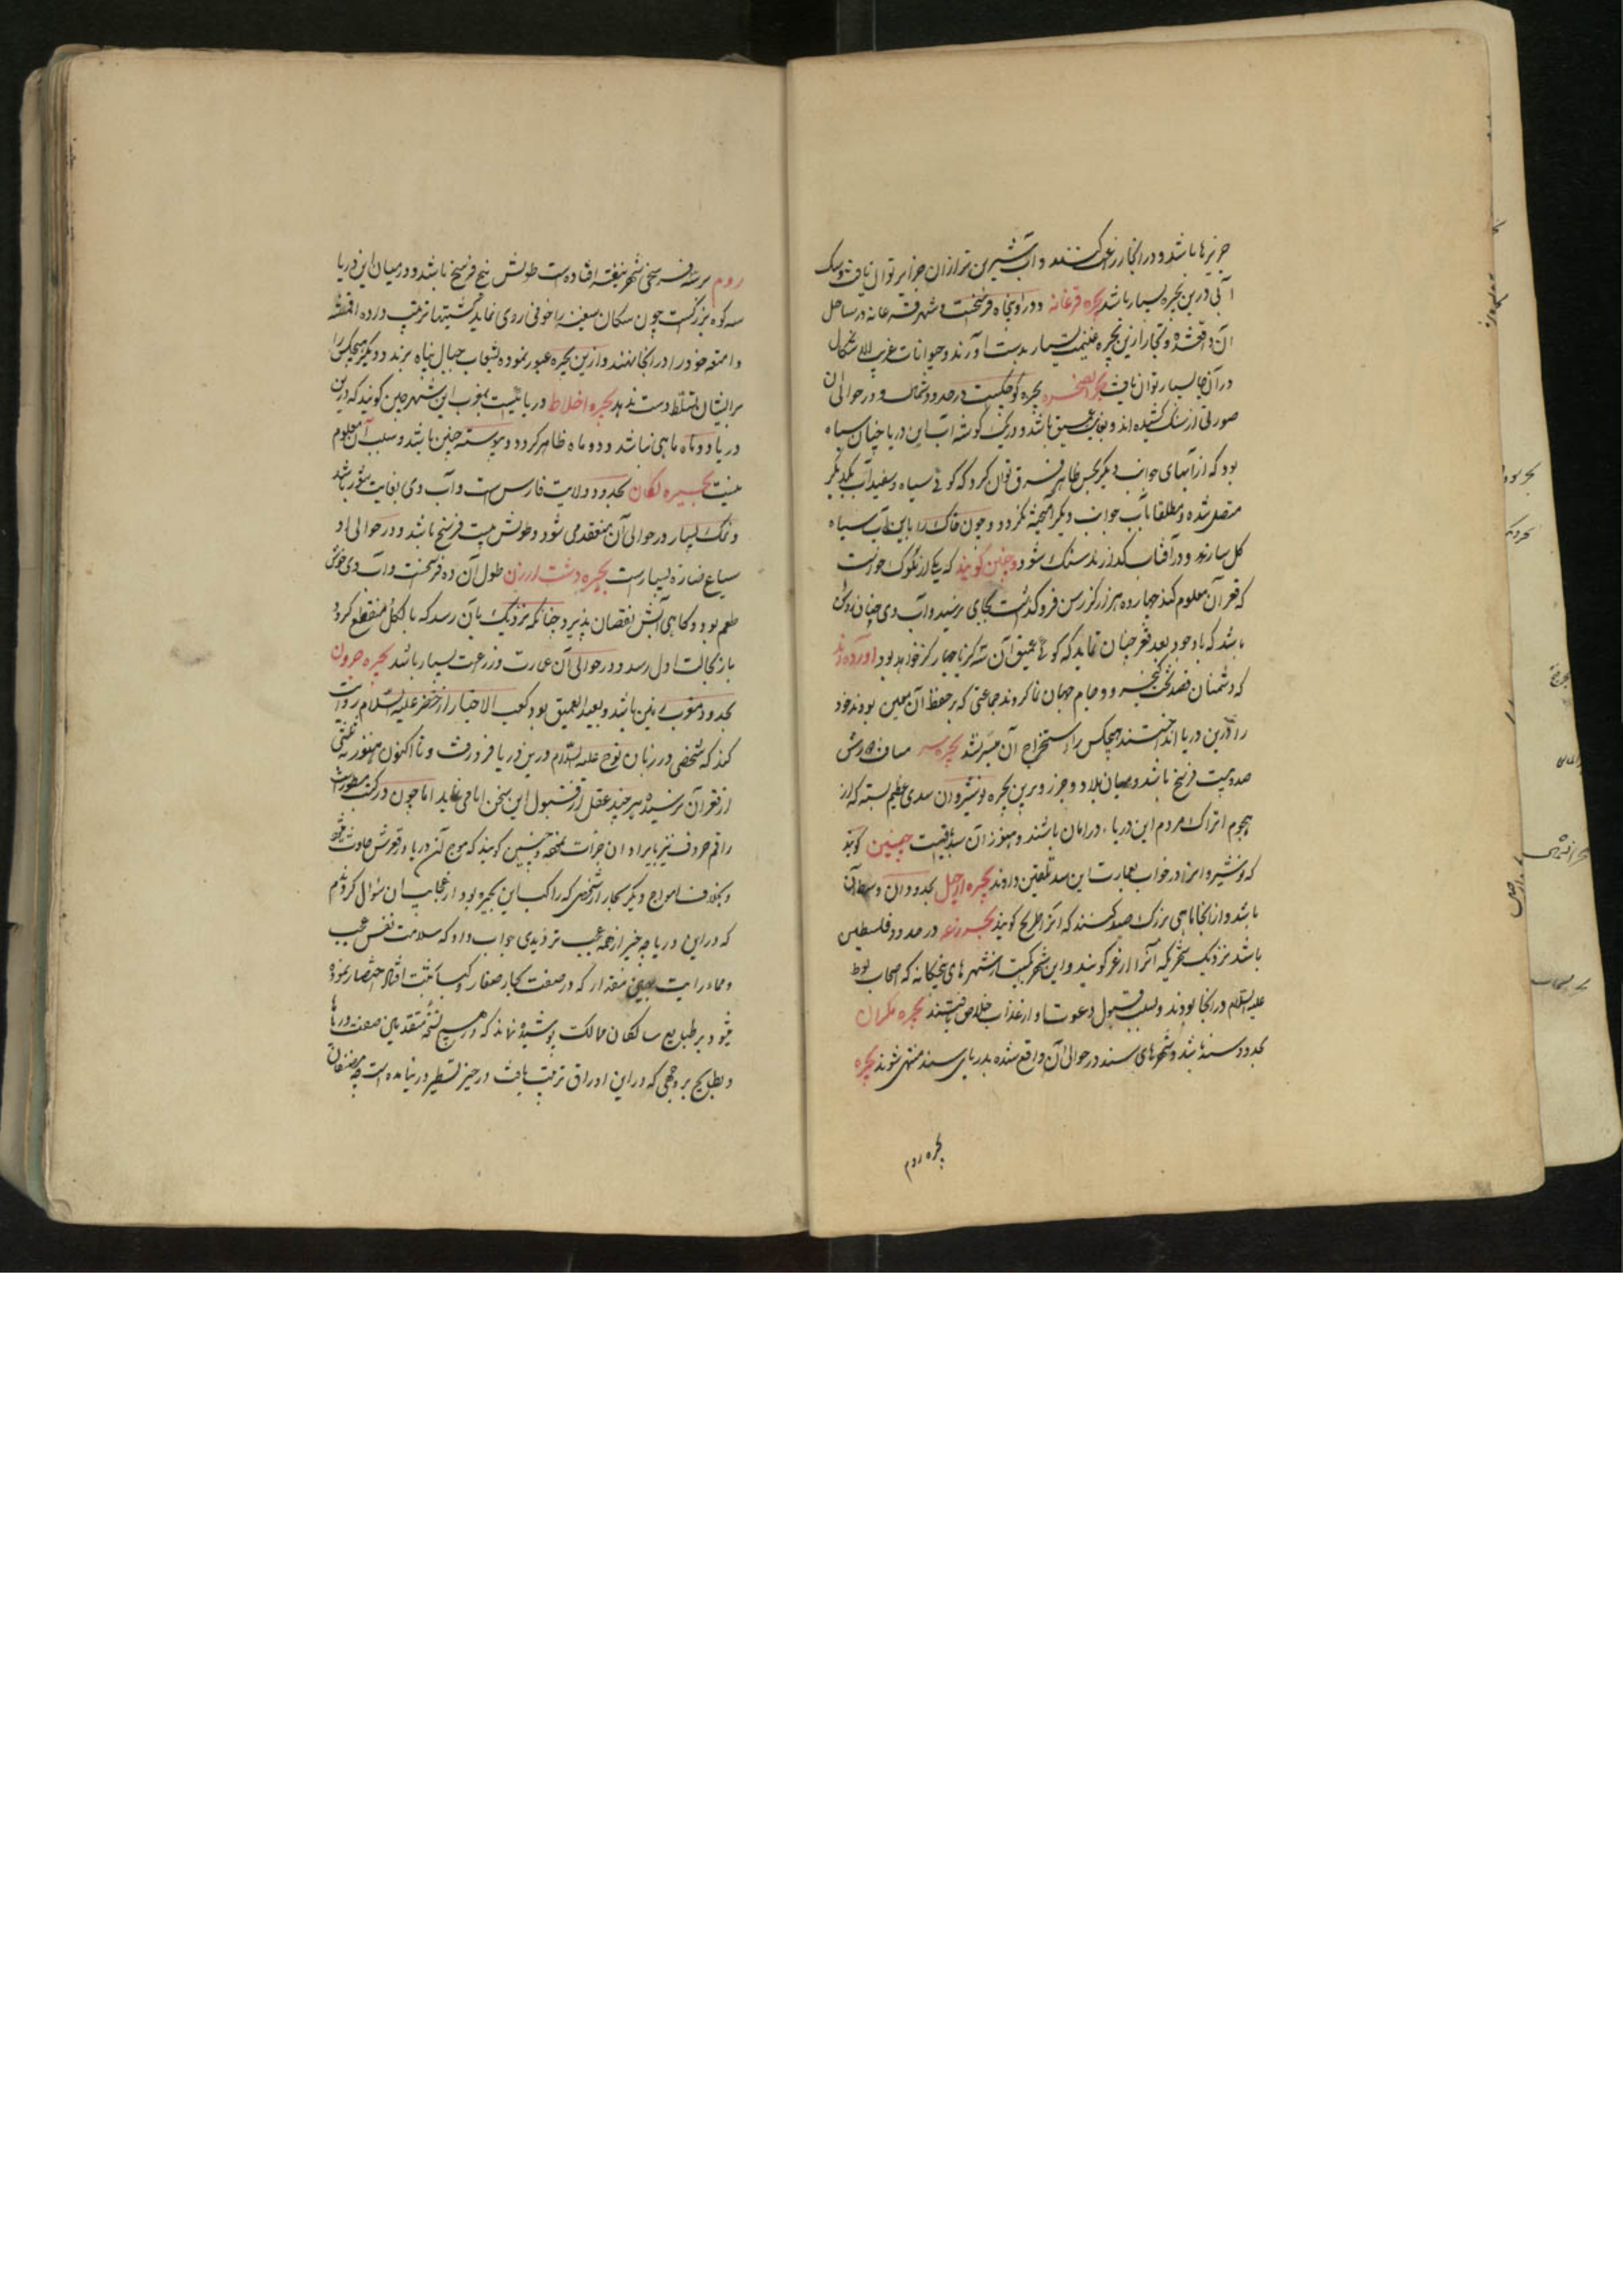 جزیرها باشد و در انجا زرعت کنند و آب شیرین تر ازان جزایر توان یافت و سک
آبی درین بحیره بسیار باشد بحیره فرغانه دور او پنجاه فرسخست و شهر فرغانه در ساحل
آن واقعشده و تجار ازین بحیره غنیمت بسیار بدست آورند و حیوانات غریب الاشکال
در آن بسیار توان یافت بحیره کوچکیست در حدود شمال و در حوالی آن
صورتی از سنک کشیده اند و بغایت عمیق باشد و در یک کوشه آب این دریا چنان سیاه
بود که از آبهای جوانب دیکر بحس ظاهر فرق توان کرد که کوئی سیاه و سفید آب بیکدیکر
متصل شده و مطلقا بآب جوانب دیکر آمیخته نکردد و چون خاک را باین آب سیاه
کل سازند و در آفتاب کذارند سنک شود و چنین کویند که یکی از ملوک خواست
که قعر آن معلوم کند چهارده هزار کز رسن فرو کذاشت بجای نرسید و آب وی چنان روشن
باشد که باوجود بعد قعر چنان نماید که کوئی عمیق آن سه کز تا چهار کز خواهد بود آورده اند
که دشمنان قصد تخت کیخسرو و جام جهان نما کردند جماعتی که بر حفظ آن معین بودند خود
را درین دریا انداختند هیچکس را استخراج آن میسر نشد بحیره مسافت دورش
صد و بیست فرسخ باشد و میان بلاد و خزر و برین بحیره نوشیروان سدی عظیم بسته که از
هجوم اتراک مردم این دریا در امان باشند و هنوز آن سد باقیست چنین کویند
که نوشیروانرا در خواب بعمارت این سد تلقین دادند بحیره ارجیل بحدود وان و وسطان
باشد و از انجا ماهی بزرک صید کنند که آنرا طریخ کویند بحیره زغر در حدود فلسطین
باشد نزدیک بشهریکه آنرا ارغر کویند و این شهر یکیست از شهرهای پنجکانه که اصحاب لوط
علیه السلام در انجا بودند و بسبب قبول دعوت او از عذاب خلاص یافتند بحیره مکران
بحدود سند باشد و شهرهای سند در حوالی آن واقع شده بدریای سند منتهی شوند بحیره
بحیره روم
روم بر سه فرسخی شهر نیقیه افتاده است طولش پنج فرسخ باشد و در میان این دریا
سه کوه بزرکست چون سکان سفینه را خوفی روی نماید کشتیها ترتیب داده اقمشه
و امتعه خود را در انجا نهند و ازین بحیره عبور نموده بشعاب جبال پناه برند و دیکر هیچکس را
بر ایشان تسلط دست ندهد بحیره اخلاط دریائیست بمغرب این شهر چنین کویند که درین
دریا دو ماه ماهی نباشد و دو ماه ظاهر کردد و پیوسته چنین باشد و سبب آن معلوم
نیست بحیره لکان بحدود ولایت فارس است و آب وی بغایت شور باشد
و نمک بسیار در حوالی آن منعقد می شود و طولش بیست فرسخ باشد و در حوالی او
سباع ضاره بسیارست بحیره دشت ارزن طول آن ده فرسخست و آب وی خوش
طعم بود و کاهی آبش نقصان پذیرد چنانکه نزدیک بان رسد که بالکل منقطع کردد
باز بحالت اول رسد و در حوالی آن عمارت و زرعت بسیار باشد بحیره جرون
بحدود مغرب زمین باشد و بعید العمیق بود کعب الاحبار از خضر علیه السلام روایت
کند که شخصی در زمان نوح علیه السلام درین دریا فرو رفت و تا اکنون هنوز
از قعر آن نرسیده هر چند عقل از قبول این سخن ابا می نماید اما چون در کتب مسطورست
راقم حروف نیز بایراد آن جرأت نموده و چنین کویند که موج آن دریا در قعرش حادث میشود
و بخلاف امواج دیکر بحار از شخصی که راکب این بحیره بود از عجایب آن سوال کردم
که در این دریا چه چیز از همه عجیب تر دیدی جواب داد که سلامت نفس عجیب
و ماورایت بدین مقدار که در صفت بحار صغار و کبار ثبت افتاد اختصار نموده
میشود بر طبایع سالکان ممالک پوشیده نماند که در هیچ نسخه متقدمین صفت دریاها
و بطایح بر وجهی که در این اوراق ترتیب یافت در حیز تسطیر در نیامده است چه مصنفان